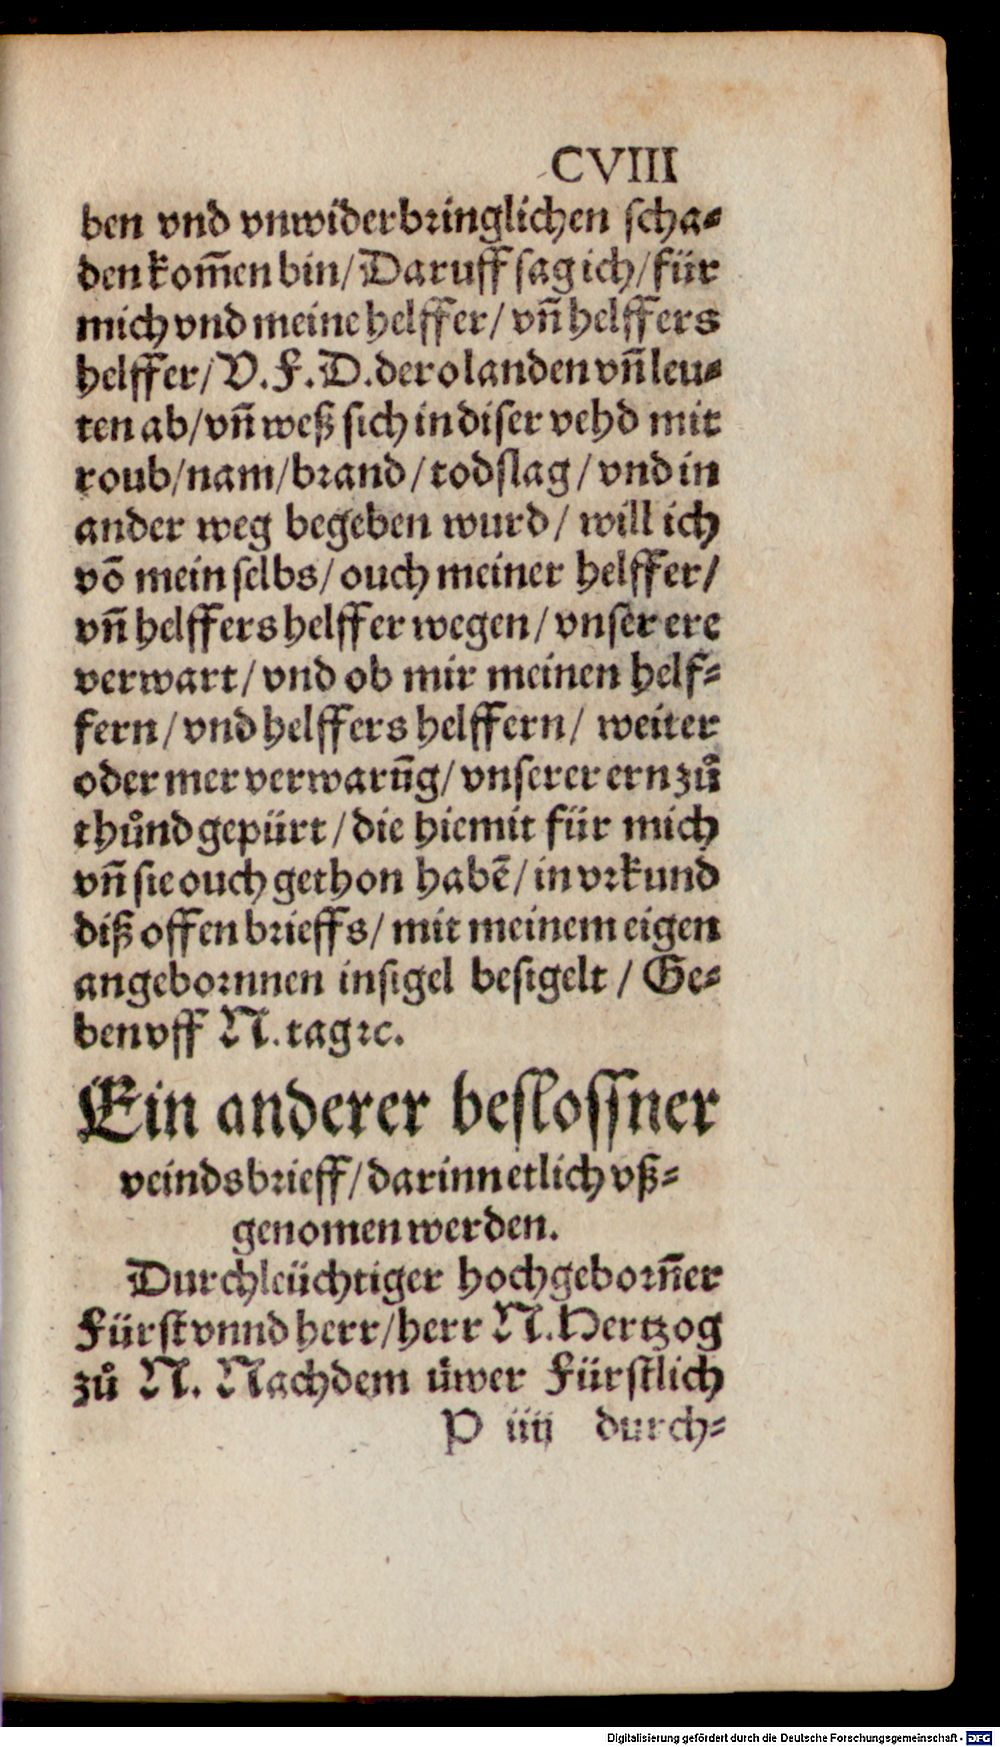 CVIII
ben vnd vnwiderbringlichen scha⸗
den kom̄en bin/ Daruff sag ich/ für
mich vnd meine helffer/ vn̄ helffers
helffer/ V. F. D. dero landen vn̄ leu⸗
ten ab/ vn̄ weß sich in diser vehd mit
roub/ nam/ brand/ todslag/ vnd in
ander weg begeben wurd/ will ich
vō mein selbs/ ouch meiner helffer/
vn̄ helffers helffer wegen/ vnser ere
verwart/ vnd ob mir meinen helf⸗
fern/ vnd helffers helffern/ weiter
oder mer verwarūg/ vnserer ern zů
thůnd gepürt/ die hiemit für mich
vn̄ sie ouch gethon habē/ in vrkund
diß offen brieffs/ mit meinem eigen
angebornnen insigel besigelt/ Ge⸗
ben vff N. tag ꝛc.
Ein anderer beslossner
veindsbrieff/ darinn etlich vß⸗
genomen werden.
Durchleüchtiger hochgeborn̄er
Fürst vnnd herr/ herr N. Hertzog
zů N. Nachdem üwer Fürstlich
P iiij durch⸗
Digitalisierung gefördert durch die Deutsche Forschungsgemeinschaft - DFG